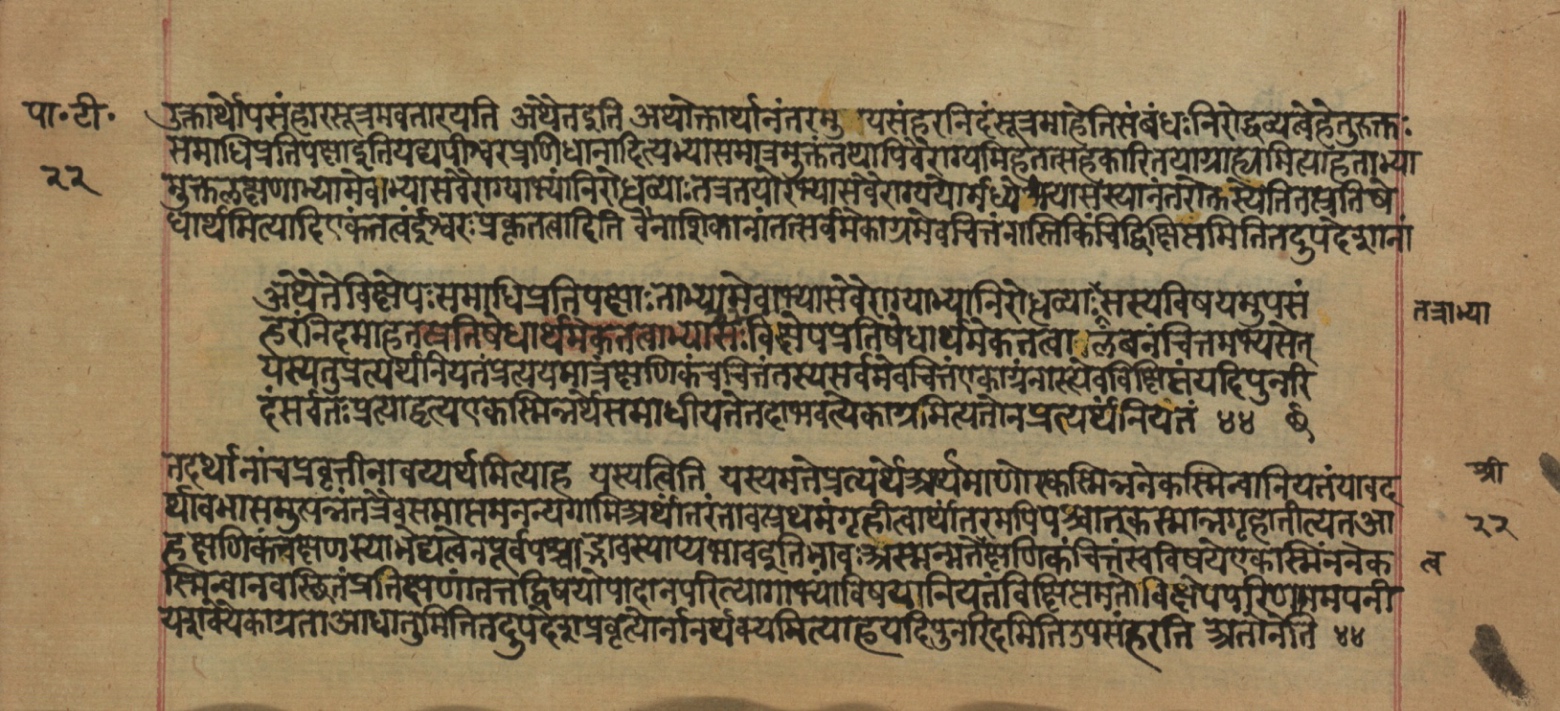 पा॰टी॰
२२
उक्तार्थोपसंहारसूत्रमवतारयति अथैतइति अथोक्तार्थानंतरमु पसंहरनिदंसूत्रमाहेतिसंबंधःनिरोद्धव्यत्वेहेतुरुक्तः
समाधिप्रतिपक्षाइतियद्यपीश्वरप्रणिधानादित्यभ्यासमात्रमुक्तंतथापिवैराग्यमिहतत्सहकारितयाग्राह्यमित्याहताभ्या
मुक्तलक्षणाभ्यामेवाभ्यासवैराग्याभ्यांनिरोधव्याःतत्रतयोरभ्यासवैराग्ययोर्मध्येअभ्यासस्यानंतरोक्तस्येतितत्प्रतिषे
धार्थमित्यादिएकंतत्वंईश्वरःप्रकृतत्वादिति वैनाशिकानांतत्सर्वमेकाग्रमेवचित्तंनास्तिकिंचिद्विक्षिप्तमितितदुपदेशानां
अथैतेविक्षेपःसमाधिप्रतिपक्षाःताभ्यामेवाभ्यासवैराग्याभ्यानिरोधव्याःसस्यविषयमुपसं
हरंनिदमाहतत्प्रतिषेधार्थमेकतत्वाभ्यासःविक्षेपप्रतिषेधार्थमेकतत्वा लंबनंचित्तमभ्यसेत्
यस्यतुप्रत्यर्थंनियतंप्रत्ययमात्रंक्षणिकंचचित्तंतस्यसर्वमेवचित्तंएकाग्रंनास्त्येवविक्षिप्तंयदिपुनरि
दंसर्वतःप्रत्याहृत्यएकस्मिन्नर्थेसमाधीयतेतदाभवत्येकाग्रमित्यतोनप्रत्यर्थंनियतं ४४
तत्राभ्या
तदर्थानांचप्रवृत्तीनांवैयर्थ्यमित्याह यस्यत्विति यस्यमतेप्रत्यर्थेअर्थमाणेएकस्मिन्ननेकस्मिन्वानियतंयावद
र्थावभासमुत्पन्नंतत्रैवसमाप्तमनन्यगामिअर्थांतरंतावत्प्रथमंगृहीत्वार्थांतरमपिपश्चात्कस्मान्नगृह्णातीत्यतआ
हक्षणिकंचक्षणस्याभेद्यत्वेनपूर्वपश्चाद्भावस्याप्यभावइतिभावःअस्मन्मतेक्षणिकंचित्तंस्वविषयेएकस्मिंननेक
स्मिन्वानवस्थितंप्रतिक्षणंतत्तद्विषयोपादानपरित्यागाभ्यांविषयानियतंविक्षिप्तमतोविक्षेपपरिणाममपनी
यशक्यैकाग्रताआधातुमितितदुपदेशप्रवृत्योर्नानर्थक्यमित्याहयदिपुनरिदमितिउपसंहरति अतोनेति ४४
श्री
२२
ल